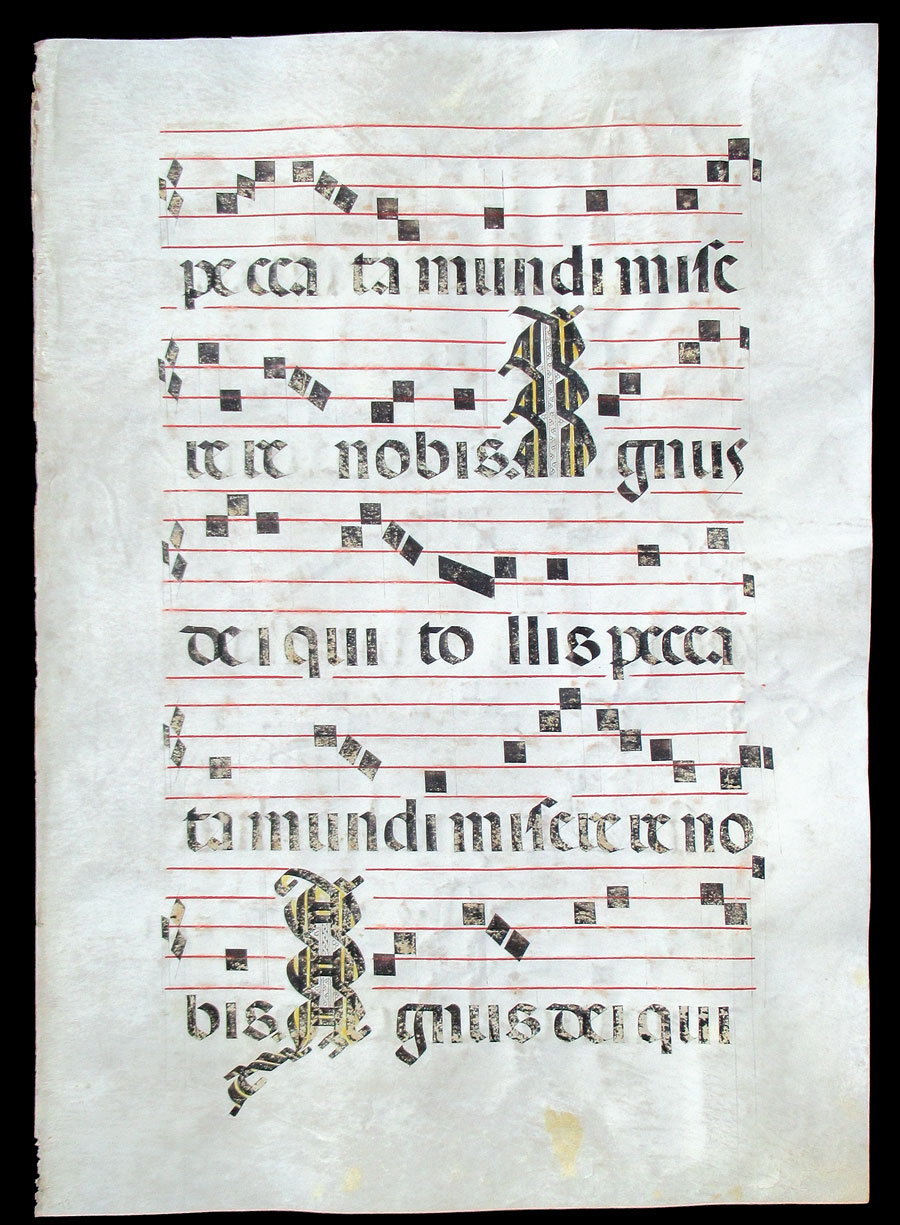 pe cca ta mundi mise
re re nobis. A gnus
de i qui to llis pecca
ta mundi miserere no
bis. A gnus dei qui